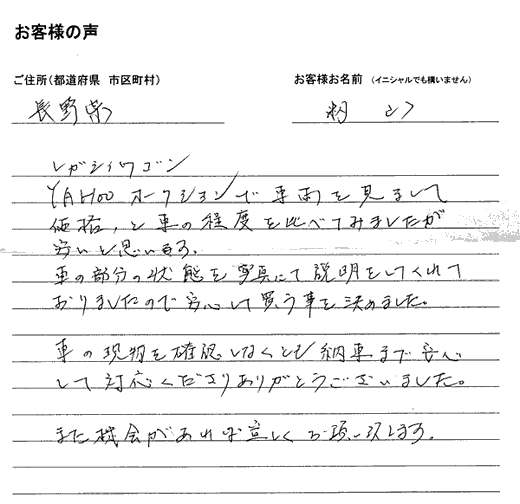 お客様の声
ご住所（都道府県 市区町村）
お客様お名前 （イニシャルでも構いません）
長野県
レガシィワゴン
YAHOOオークションで車両を見まして
価格，と車の程度を比べてみましたが
安いと思います．
車の部分の状態を写真にて説明をしてくれて
おりましたので安心して買う事を決めました。
車の現物を確認しなくとも納車まで安心
して対応くださりありがとうございました。
また機会があれば宜しくお願い致します．